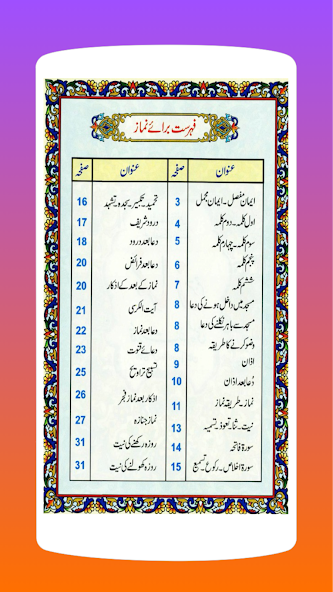 فہرست برائے نماز
عنوان صفحہ عنوان صفحہ
ایمان مفصل۔ ایمان مجمل 3
اول کلمہ۔ دوم کلمہ 4
سوم کلمہ۔ چہارم کلمہ 5
پنجم کلمہ 6
ششم کلمہ 7
مسجد میں داخل ہونے کی دعا 8
مسجد سے باہر نکلنے کی دعا 8
وضو کرنے کا طریقہ 8
اذان 9
دُعا بعد اذان 10
نماز۔ طریقہ نماز 11
نیت۔ ثنا۔ تعوذ۔ تسمیہ 13
سورۃ فاتحہ 14
سورۃ اخلاص۔ رکوع۔ تسمیع 15
تحمید۔ تکبیر۔ سجدہ۔ تشہد 16
درود شریف 17
دعا بعد درود 18
دعا بعد فرائض 20
نماز کے بعد کے اذکار 20
آیت الکرسی 21
دعا بعد نماز 22
دعائے قنوت 23
تسبیح تراویح 25
اذکار بعد نماز فجر 26
نماز جنازہ 27
روزہ رکھنے کی نیت 31
روزہ کھولنے کی نیت 31